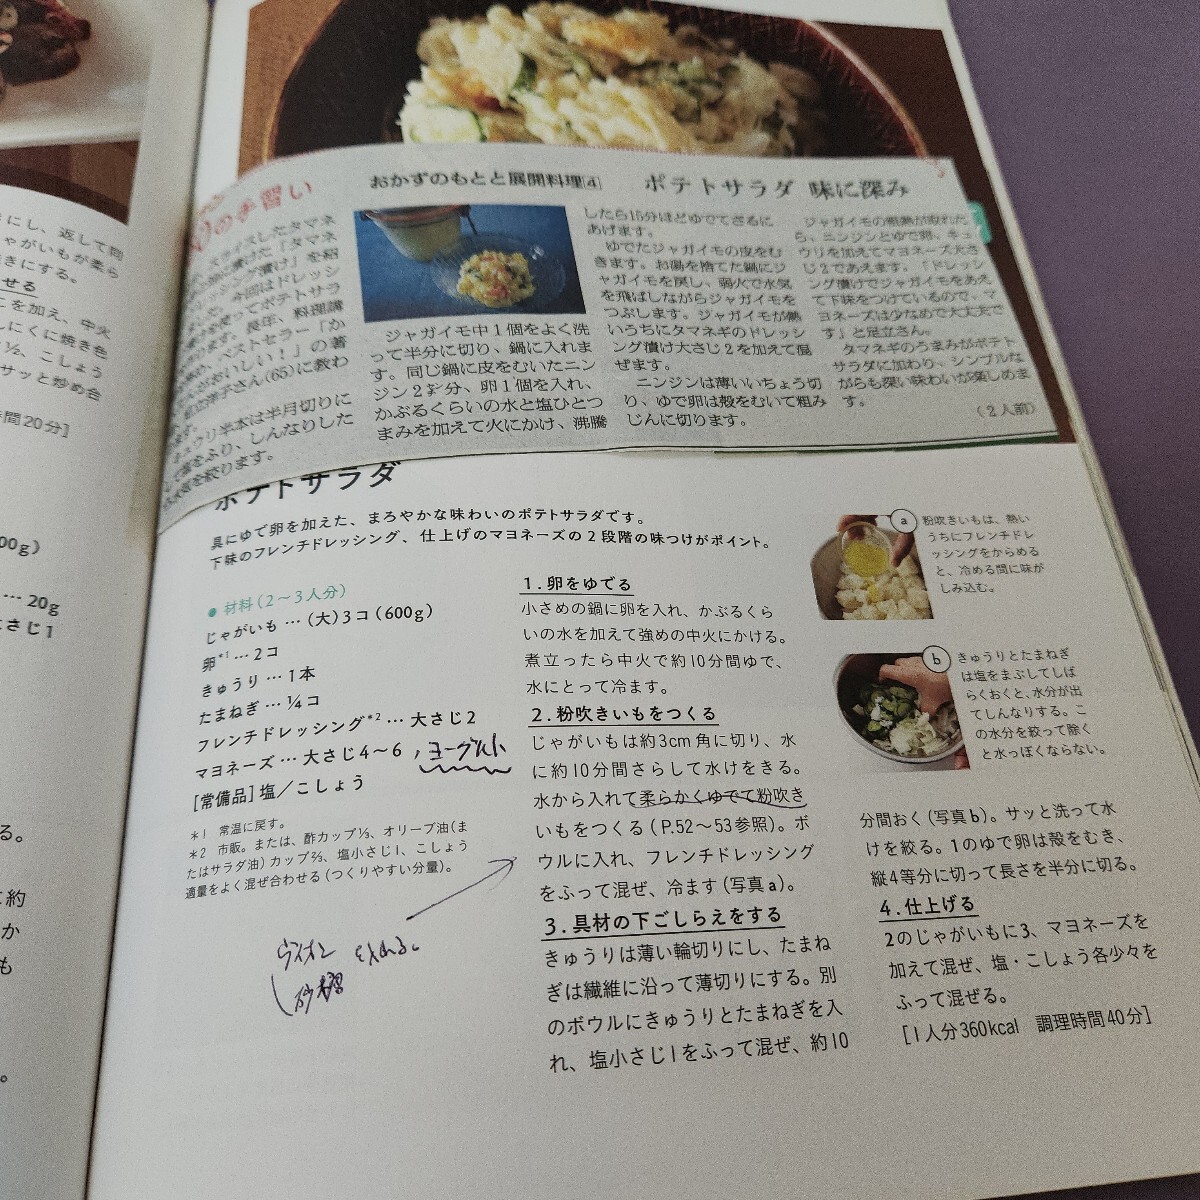 にし、返して同
ゃがいもが柔ら
きにする。
せる
こを加え、中火
んにくに焼き色
½、こしょう
サッと炒め合
時間20分]
00g)
… 20g
大さじ1
る。
に約
か
も
。
の手習い
おかずのもとと展開料理[4]
ポテトサラダ 味に深み
スライスしたタマネ
に漬けた「タマネ
ッシング漬け」を紹
今回はドレッシ
を使ってポテトサラ
ります。長年、料理講
め、ベストセラー「か
んおいしい！」の著
足立洋子さん(65)に教わ
ます。
キュウリ半本は半月切りに
て塩をふり、しんなりした
水気を絞ります。
ジャガイモ中1個をよく洗
って半分に切り、鍋に入れま
す。同じ鍋に皮をむいたニン
ジン2㌢分、卵1個を入れ、
かぶるくらいの水と塩ひとつ
まみを加えて火にかけ、沸騰
したら15分ほどゆでてざるに
あげます。
ゆでたジャガイモの皮をむ
きます。お湯を捨てた鍋にジ
ャガイモを戻し、弱火で水気
を飛ばしながらジャガイモを
つぶします。ジャガイモが熱
いうちにタマネギのドレッシ
ング漬け大さじ2を加えて混
ぜます。
ニンジンは薄いいちょう切
り、ゆで卵は殻をむいて粗み
じんに切ります。
ジャガイモの粗熱が取れた
ら、ニンジンとゆで卵、キュ
ウリを加えてマヨネーズ大さ
じ2であえます。「ドレッシ
ング漬けでジャガイモをあえ
て下味をつけているので、マ
ヨネーズは少なめで大丈夫で
す」と足立さん。
タマネギのうまみがポテト
サラダに加わり、シンプルな
がらも深い味わいが楽しめま
す。
(2人前)
ポテトサラダ
具にゆで卵を加えた、まろやかな味わいのポテトサラダです。
下味のフレンチドレッシング、仕上げのマヨネーズの2段階の味つけがポイント。
● 材料(2〜3人分)
じゃがいも …(大)3コ(600g)
卵*1 … 2コ
きゅうり … 1本
たまねぎ … ¼コ
フレンチドレッシング*2 … 大さじ2
マヨネーズ … 大さじ4〜6 , ヨーグルト
[常備品]塩／こしょう
*1 常温に戻す。
*2 市販。または、酢カップ⅓、オリーブ油(ま
たはサラダ油)カップ⅔、塩小さじ1、こしょう
適量をよく混ぜ合わせる(つくりやすい分量)。
入れる。
砂糖
1.卵をゆでる
小さめの鍋に卵を入れ、かぶるくら
いの水を加えて強めの中火にかける。
煮立ったら中火で約10分間ゆで、
水にとって冷ます。
2.粉吹きいもをつくる
じゃがいもは約3cm角に切り、水
に約10分間さらして水けをきる。
水から入れて柔らかくゆでて粉吹き
いもをつくる(P.52〜53参照)。ボ
ウルに入れ、フレンチドレッシング
をふって混ぜ、冷ます(写真a)。
3.具材の下ごしらえをする
きゅうりは薄い輪切りにし、たまね
ぎは繊維に沿って薄切りにする。別
のボウルにきゅうりとたまねぎを入
れ、塩小さじ1をふって混ぜ、約10
a
粉吹きいもは、熱い
うちにフレンチドレ
ッシングをからめる
と、冷める間に味が
しみ込む。
b
きゅうりとたまねぎ
は塩をまぶしてしば
らくおくと、水分が出
てしんなりする。こ
の水分を絞って除く
と水っぽくならない。
分間おく(写真b)。サッと洗って水
けを絞る。1のゆで卵は殻をむき、
縦4等分に切って長さを半分に切る。
4.仕上げる
2のじゃがいもに3、マヨネーズを
加えて混ぜ、塩・こしょう各少々を
ふって混ぜる。
[1人分360kcal 調理時間40分]